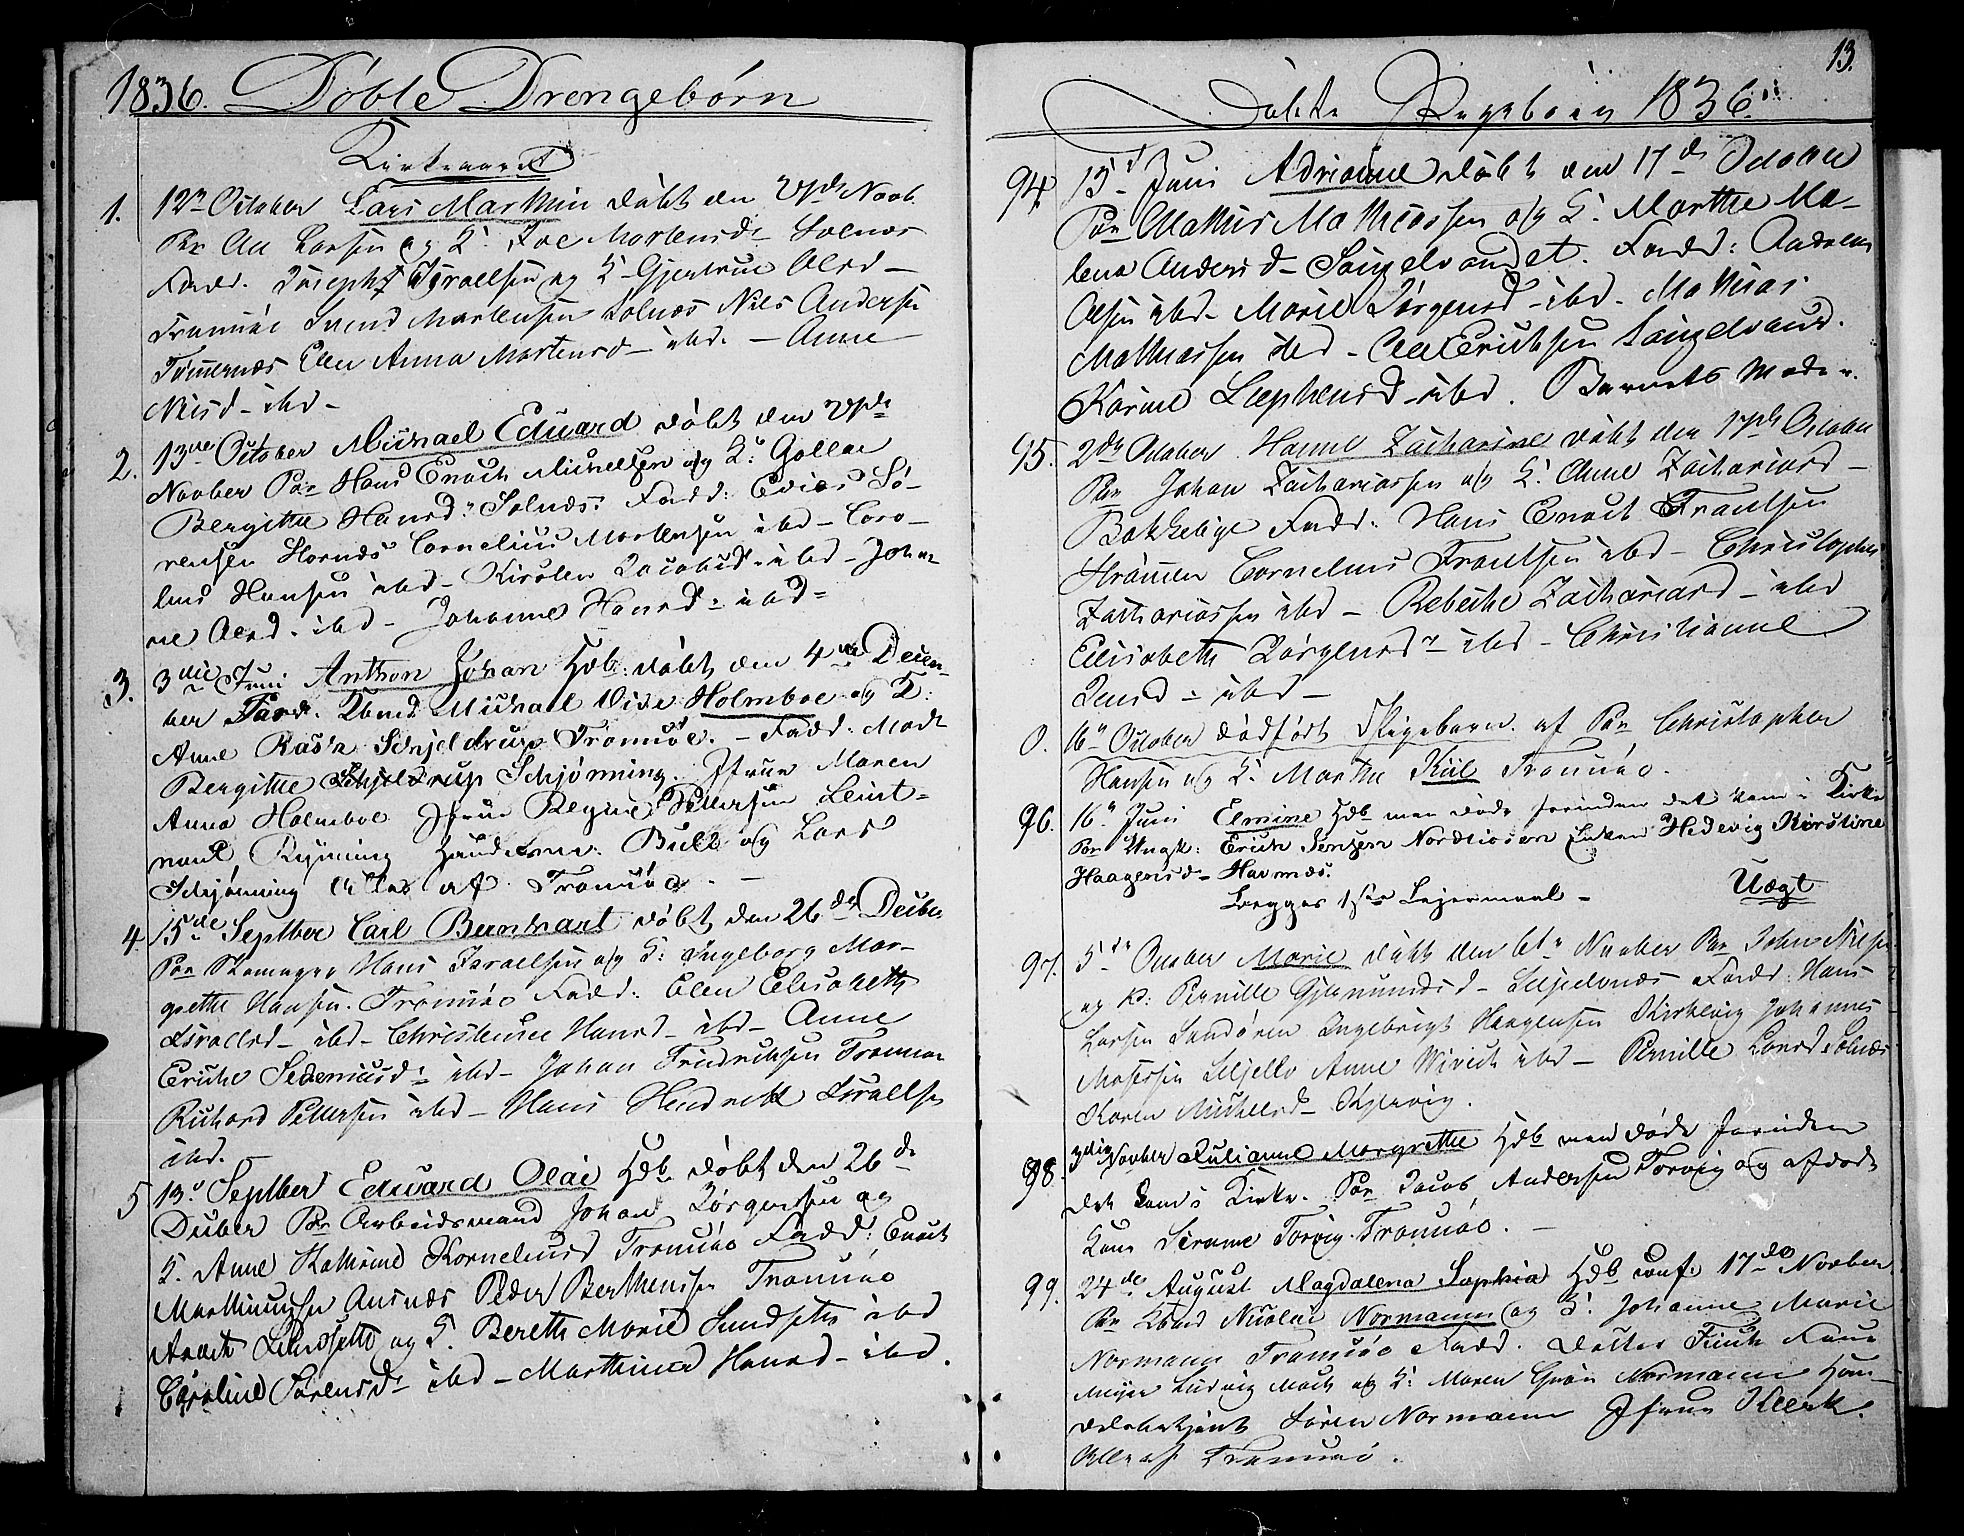 1836. Döbte Drengebörn
Kirkeaaret
1. 12te October Lars Marthin döbt den Novb.
Par Larsen og K. Mortensd. Solnæs
Fadd. Joseph Israelsen og K. Gjertrue Olsd –
Tromsöe Svend Mortensen Solnæs Nils Andersen
Tömmernæs Elen Anna Mortensd – ibd. – Anne
Nilsd – ibd –
2. 13de October Michael Eduard döbt den
Novber Par Hans Enoch Michelsen og K. Gollae
Bergithe Hansd. Solnæs. Fadd: Sö-
rensen Hornæs Cornelius Mortensen ibd – Caro-
lus Hansen ibd – Kirsten Jacobsd. ibd – Johan-
ne Olsd. ibd – Johanne Hansd. ibd –
3. 3die Juni Anthon Johan Hdb. döbt den 4de Decem-
ber Par Kbmd Michael Wide Holmboe og K:
Anne Rasch Schjeldrup Tromsöe. – Fadd: Mad.
Bergithe Schjeldrup Schjönning. Jfrue Maren
Anna Holmboe Jfrue Regine Pettersen Leut-
nant Ryning Handelsm. Bull og Lars
Schjönning alle af Tromsöe. –
4. 15de Septber Carl Bernhart döbt den 26de Decber
Par Skomager Hans Israelsen og K: Ingeborg Mar-
grethe Hansen. Tromsöe Fadd: Elen Elisabeth
Israelsd – ibd – Christense Hansd – ibd – Anne
Eriche Sedeniusd. ibd – Johan Fridrichsen Tromsöe
Richard Pettersen ibd – Hans Hendrich Israelsen
ibd.
5 13de Septber Edward Olai Hdb döbt den 26de
Decber Par Arbeidsmand Johan Jörgensen og
K. Anne Kathrine Kornelusd Tromsöe Fadd: Enoch
Marthinussen Ansnæs Peder Berthensen Tromsöe
Arent og K. Bereth Marie Sundseth ibd
Caroline Sörensd – ibd – Marthina Hansd – ibd.
13.
Döbte Pigebörn 1836.
94. 15d Juni Adrianne döbt den 17de October
Par Mathis Mathiassen og K. Marthe Ma-
lena Andersd – Sandelvandet. Fadd: Andreas
Olsen ibd – Marie Jörgensd – ibd – Mathias
Mathiassen ibd – Ole Erichsen Sandelvand.
Karine Stephensd – ibd. Barnets Moder.
95. 2den October Hanne Zacharine döbt den 17de October
Par Johan Zachariassen og K. Anne Zachariasd –
Bakkebye Fadd: Hans Enoch Frantsen
Strömmen Cornelius Frantsen ibd – Christopher
Zachariassen ibd – Rebecke Zachariasd – ibd
Elisabeth Jörgensd – ibd – Christianne
Jensd – ibd –
0. 16de October dödfödt Pigebarn af Par Christopher
Hansen og K. Marthe Kiil Tromsöe.
96. 16de Juni Elmine Hdb men döde forinden det kom i Kirke
Par Ungk: Erich Jensen Nordkiosen Enken Hedevig Kirstine
Haagensd – Havnnæs.
Begges 1ste Leiermaal – Uægt
97. 5te October Marie döbt den 6te Novber Par John Nilsen
og K: Pernille Gjermundsd – Liljedonæs Fadd: Hans
Larsen Sandören Ingebrigt Haagensen Kirkevig Johannes
Mosessen Liljelv Anne Wivich ibd – Pernille Larsd Solnæs
Karen Michelsd – Kjervig.
98. 3die Novber Julianne Margrethe Hdb men döde forinden
det kom i Kirke. Par Jacob Andersen Torvig og afdöde
Kone Sirianne Torvig Tromsöe. –
99. 24de August Magdalena Sophia Hdb conf: 17de Novber
Par Kbmd Nicolai Normann og K. Johanne Marie
Normann Tromsöe Fadd. Doctor Finck Frue
Meyer Ludvig Mack og K. Maren Grön Normann Han-
delsbetjent Sören Normann Jfrue Kleerk.
Alle af Tromsöe.